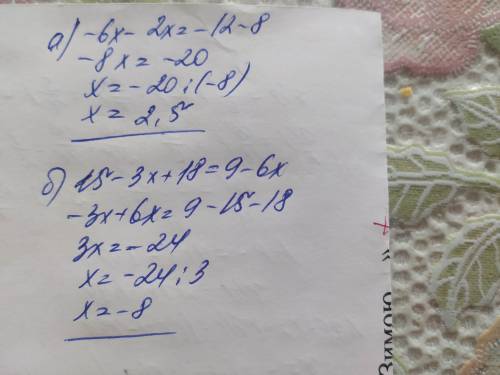 а) -6x - 2x = -12 - 8
-8x = -20
x = -20 : (-8)
x = 2,5
б) 15 - 3x + 18 = 9 - 6x
-3x + 6x = 9 - 15 - 18
3x = -24
x = -24 : 3
x = -8
Зимою „